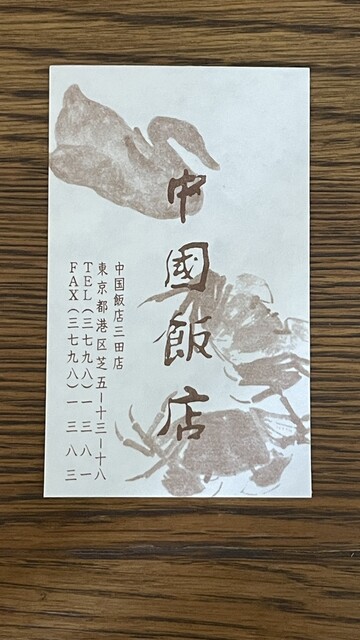 中國飯店
中国飯店三田店
東京都港区芝五ー十三ー十八
TEL(三七九八)一三八一
FAX(三七九八)一三八三